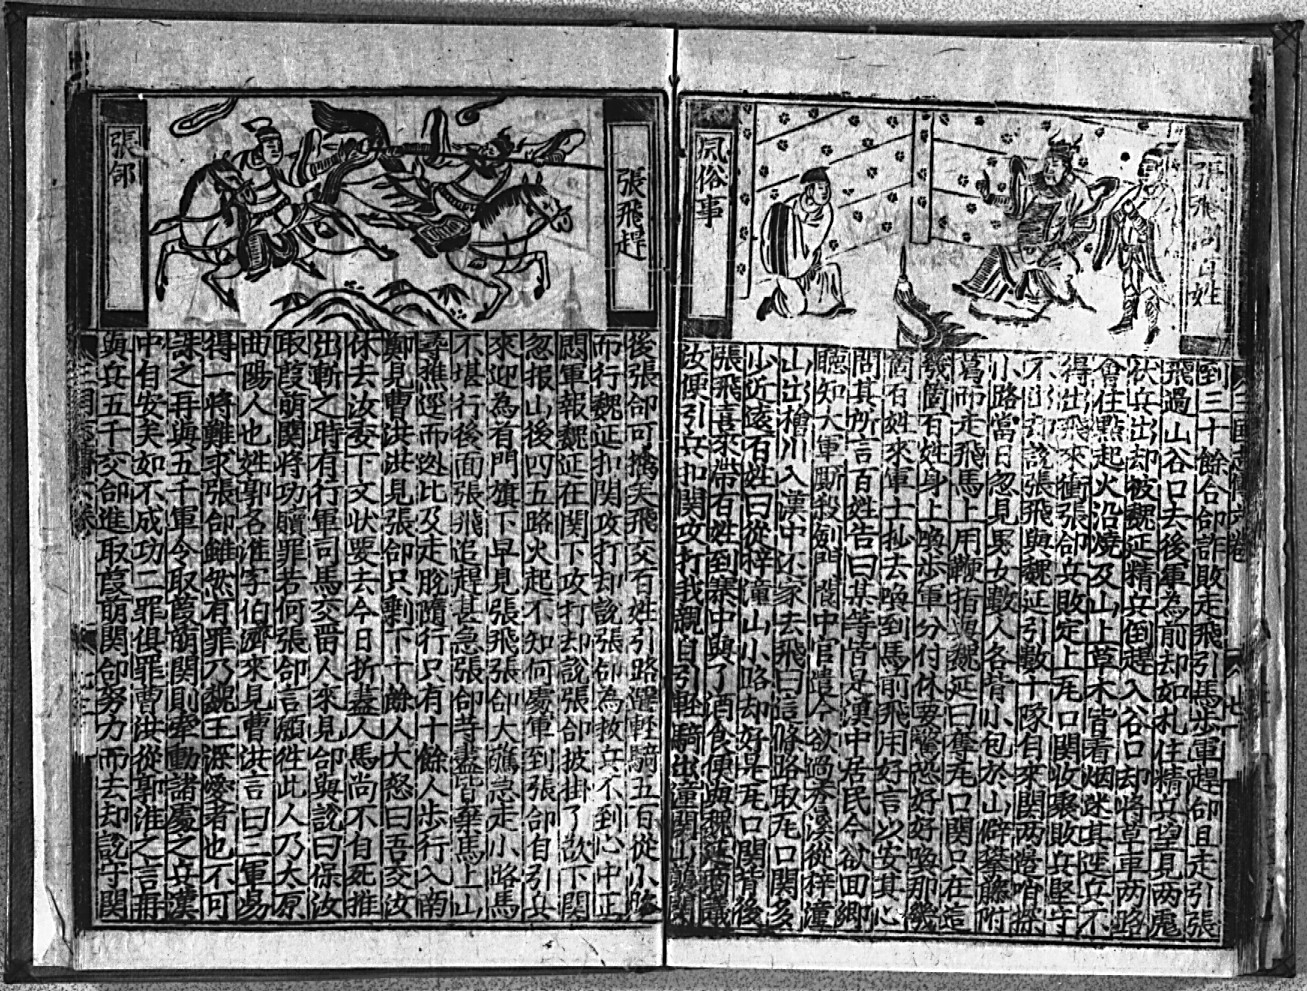 張飛問百姓
風俗事
到三十餘合郃詐敗走飛引馬步軍趕郃且走引張
飛過山谷口去後軍為前却如札住精兵望見两處
伏兵出却被魏延精兵倒趕入谷口却將草車两路
會住點起火沿燒及山上草木皆着烟迷其逕兵不
得出飛來衝張郃兵敗定上瓦口關收聚敗兵堅守
不出却說張飛與魏延引數十隊自來關两邊哨探
小路當日忽見男女數人各背小包於山僻攀藤附
葛而走飛馬上用鞭指與魏延曰奪瓦口關只在這
幾箇百姓身上喚步軍分付休要驚恐好好喚那幾
箇百姓來軍士抄去喚到馬前飛用好言以安其心
問其所言百姓告曰某等皆是漢中居民今欲回鄉
聽知大軍厮殺劍門閬中官隘今欲過蒼溪從梓潼
山出檜川入漢中还家去飛曰這條路取瓦口關多
少近遠百姓曰從梓潼山小路却好是瓦口關背後
張飛喜來帶百姓到寨中與了酒食便與魏延商議
汝便引兵扣関攻打我親自引輕騎出潼関山襲関
張飛趕
張郃
後張郃可擒矣飛交百姓引路選輕騎五百從小路
而行魏延扣関攻打却說張郃為救兵不到心中正
悶軍報魏延在関下攻打却說張郃披掛了欲下関
忽报山後四五路火起不知何處軍到張郃自引兵
來迎為首門旗下早見張飛張郃大驚急走小路馬
不堪行後面張飛追趕甚急張郃等盡皆棄馬上山
尋樵徑而迯比及走脫隨行只有十餘人步行入南
鄭見曹洪洪見張郃只剩下十餘人大怒曰吾交汝
休去汝委下文状要去今日折盡人馬尚不自死推
出斬之時有行軍司馬交晋人來見郃與說曰保汝
取葭萌関將功贖罪若何張郃言願徃此人乃太原
曲陽人也姓郭名淮字伯濟來見曹洪言曰三軍易
得一將難求張郃雖然有罪乃魏王深愛者也不可
誅之再與五千軍令取葭萌関則牽動諸處之兵漢
中自安矣如不成功二罪俱罪曹洪從郭淮之言再
與兵五千交郃進取葭萌関郃努力而去却說守関